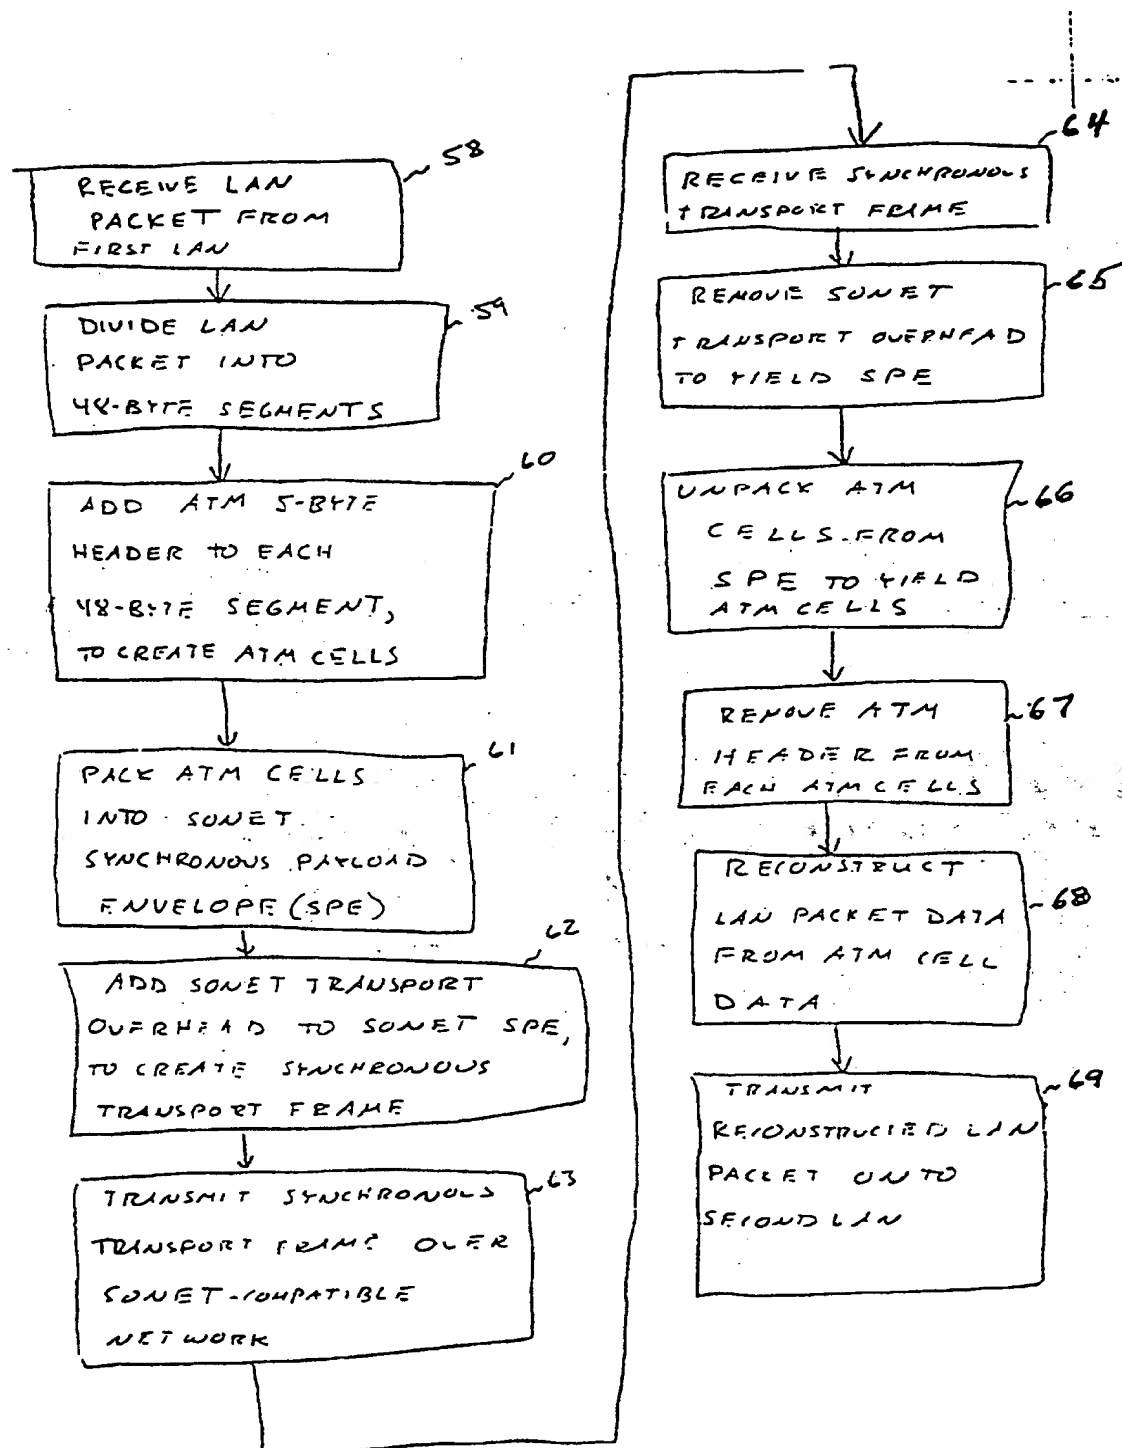 58
RECEIVE LAN
PACKET FROM
FIRST LAN
59
DIVIDE LAN
PACKET INTO
48-BYTE SEGMENTS
60
ADD ATM 5-BYTE
HEADER TO EACH
48-BYTE SEGMENT,
TO CREATE ATM CELLS
61
PACK ATM CELLS
INTO SONET
SYNCHRONOUS PAYLOAD
ENVELOPE (SPE)
62
ADD SONET TRANSPORT
OVERHEAD TO SONET SPE,
TO CREATE SYNCHRONOUS
TRANSPORT FRAME
63
TRANSMIT SYNCHRONOUS
TRANSPORT FRAME OVER
SONET-COMPATIBLE
NETWORK
64
RECEIVE SYNCHRONOUS
TRANSPORT FRAME
65
REMOVE SONET
TRANSPORT OVERHEAD
TO YIELD SPE
66
UNPACK ATM
CELLS FROM
SPE TO YIELD
ATM CELLS
67
REMOVE ATM
HEADER FROM
EACH ATM CELLS
68
RECONSTRUCT
LAN PACKET DATA
FROM ATM CELL
DATA
69
TRANSMIT
RECONSTRUCTED LAN
PACKET ONTO
SECOND LAN